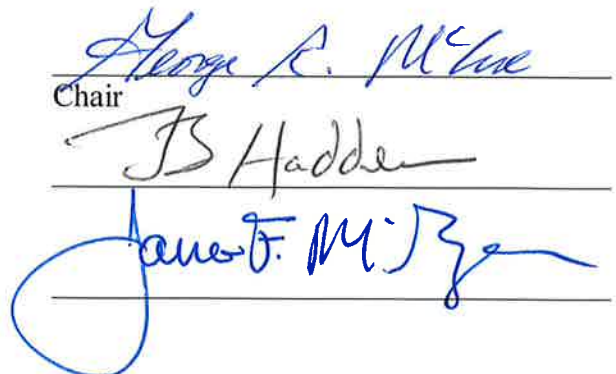 George R. McCue
Chair
JB Hadden
James F. McRyan